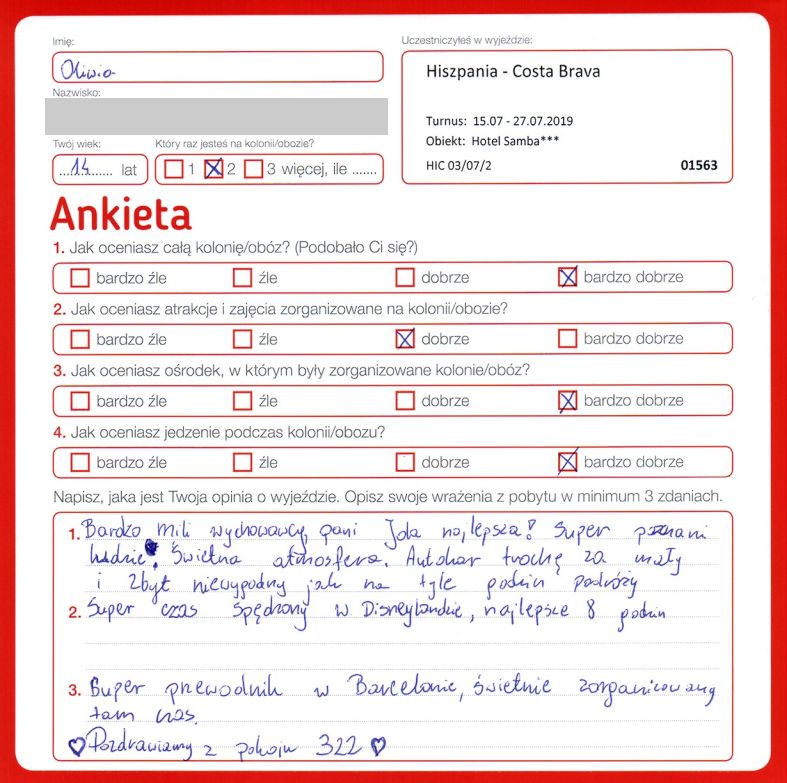 Imię:
Oliwia
Nazwisko:
Twój wiek:
....14...... lat
Który raz jesteś na kolonii/obozie?
1 2 3 więcej, ile .......
Uczestniczyłeś w wyjeździe:
Hiszpania - Costa Brava
Turnus: 15.07 - 27.07.2019
Obiekt: Hotel Samba***
HIC 03/07/2 01563
Ankieta
1. Jak oceniasz całą kolonię/obóz? (Podobało Ci się?)
bardzo źle źle dobrze bardzo dobrze
2. Jak oceniasz atrakcje i zajęcia zorganizowane na kolonii/obozie?
bardzo źle źle dobrze bardzo dobrze
3. Jak oceniasz ośrodek, w którym były zorganizowane kolonie/obóz?
bardzo źle źle dobrze bardzo dobrze
4. Jak oceniasz jedzenie podczas kolonii/obozu?
bardzo źle źle dobrze bardzo dobrze
Napisz, jaka jest Twoja opinia o wyjeździe. Opisz swoje wrażenia z pobytu w minimum 3 zdaniach.
1. Bardzo mili wychowawcy, pani Jola najlepsza! Super poznani
ludzie. Świetna atmosfera. Autokar trochę za mały
i zbyt niewygodny jak na tyle godzin podróży
2. Super czas spędzony w Disneylandzie, najlepsze 8 godzin
3. Super przewodnik w Barcelonie, świetnie zorganizowany
tam czas.
♡Pozdrawiamy z pokoju 322♡